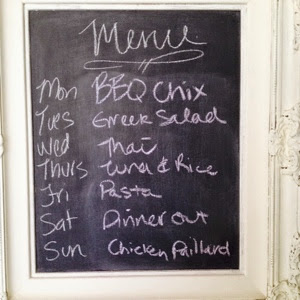 Menu
Mon BBQ Chix
Tues Greek Salad
Wed Thai
Thurs Tuna & Rice
Fri Pasta
Sat Dinner out
Sun Chicken Paillard